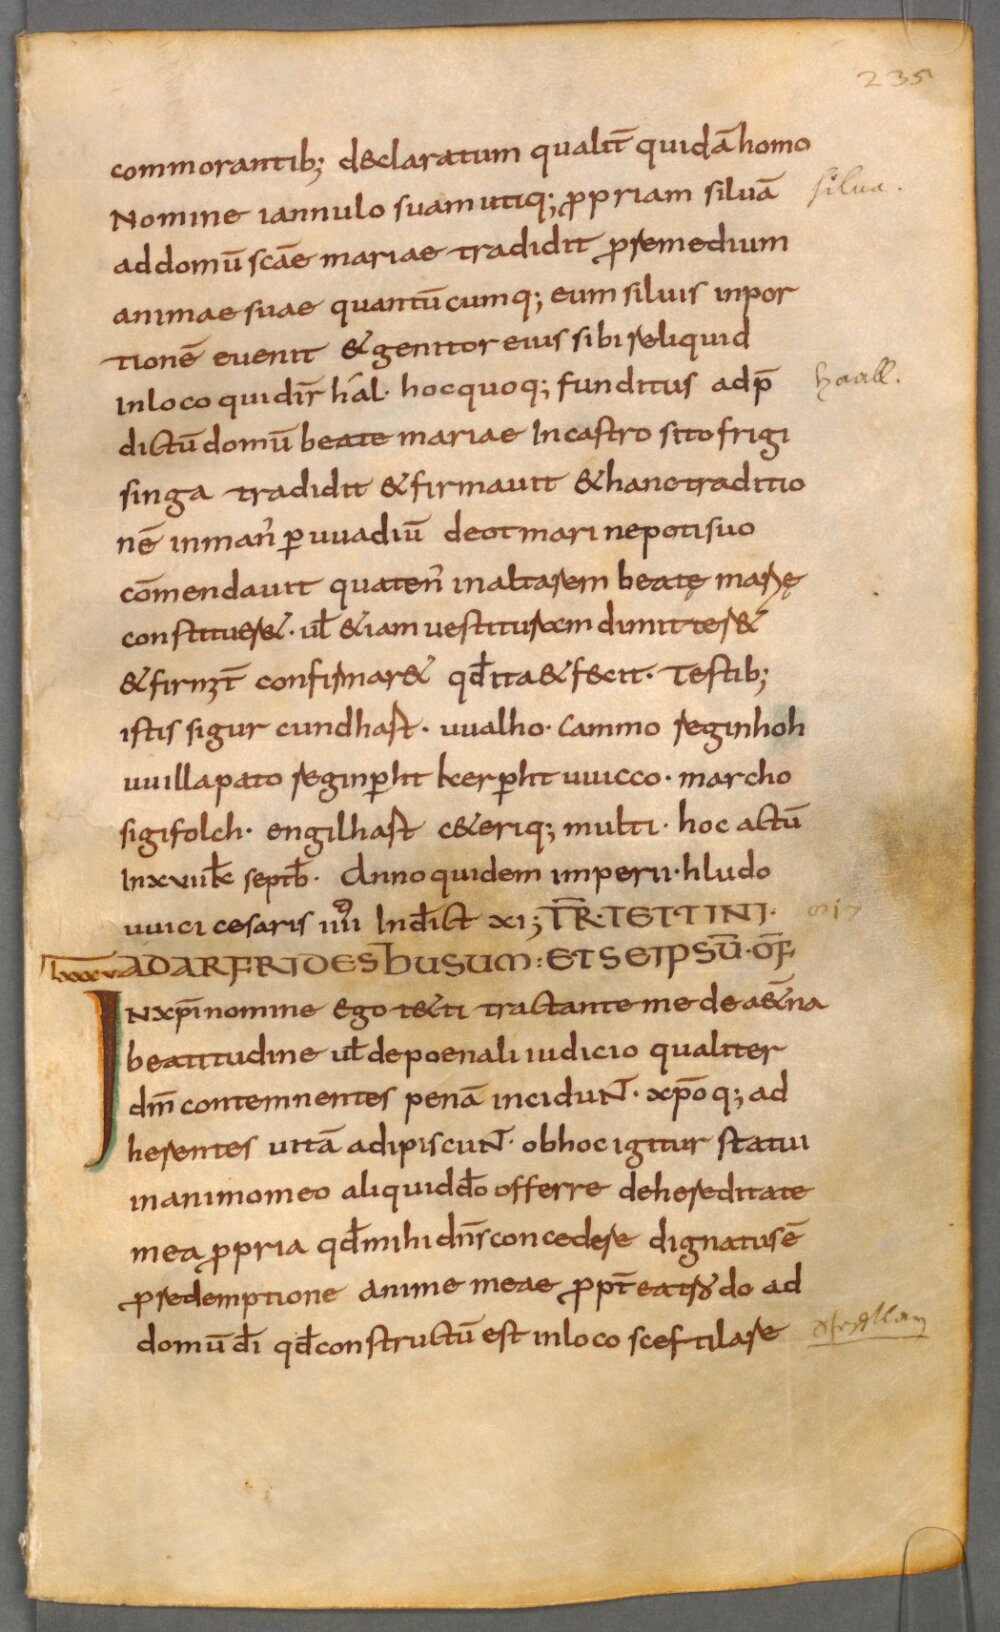 235
commorantib; d&claratum qualit̄ quidā homo
silua.
Nomine iannulo suam utiq; ꝓpriam siluā
ad domū scāe mariae tradidit ꝓ remedium
animae suae quantūcumq; eum siluis inpor
tionē evenit & genitor eius sibi reliquid
haall.
In loco qui dir̄ hal· hoc quoq; funditus ad p̄
dictū domū beate mariae In castro sito frigi
singa tradidit & firmauit & hanc traditio
nē in man᾿ ꝑ uuadiū deotmari nepoti suo
cōmendauit quaten᾿ in altarem beatę marię
constituer&· ul̄ &iam uestituram dimitter&
& firmit̄ confirmar& qd̄ ita & fecit· Testib;
istis sigur cundhart· uualho· Cammo reginhoh
uuillapato reginꝑht kerꝑht uuicco· marcho
sigifolch· engilhart c&eriq; multi· hoc actū
In xviii kl̄ septb̄· Anno quidem imperii· hludo
uuici cesaris iiii Indict̄ xi; TR̄· TETTINI·
817
lxxxv AD ARFRIDESHUSUM: ET SEIPSŪ· OF̄
INxp̄i nomine Ego t&ti tractante me de a&na
beatitudine ul̄ de poenali iudicio qualiter
dn̄m contemnentes penā inciduNT· xp̄o q; ad
herentes uitā adipiscuNT· ob hoc igitur statui
in animo meo aliquid dō offerre de hereditate
mea ꝓpria qd̄ mihi dn̄s concedere dignatus ē
ꝓ redemptione anime meae ꝓpt̄ea trado ad
domū dī qd̄ constructū est in loco sceftilare